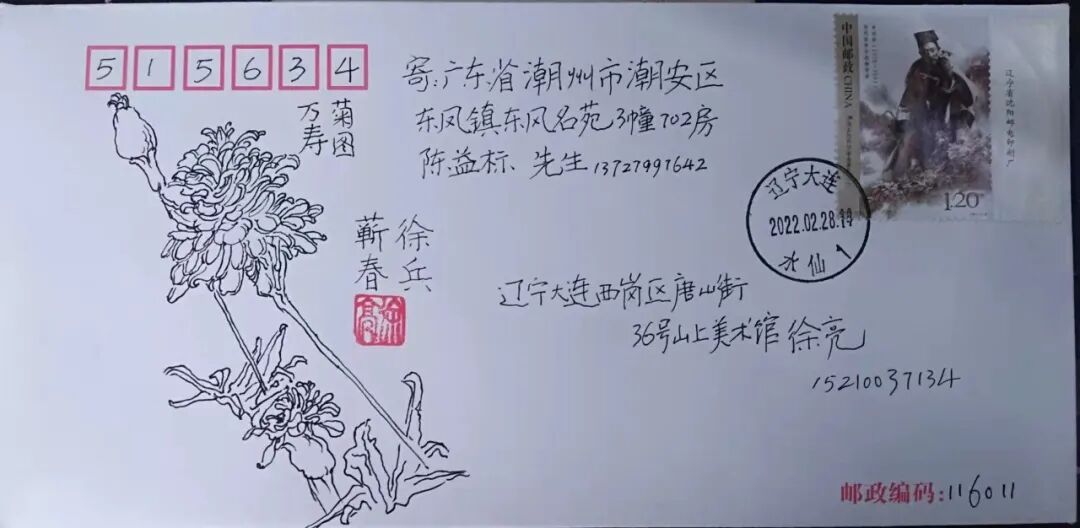 515634
寄:广东省潮州市潮安区
东凤镇东风名苑3幢702房
陈益标 先生13727997642
菊图
万寿
徐兵
蕲春
中国邮政 CHINA
1.20元
辽宁省沈阳邮电印刷厂
辽宁大连
2022.02.28.
水仙 1
辽宁大连西岗区唐山街
36号山上美术馆 徐亮
15210037134
邮政编码:116011